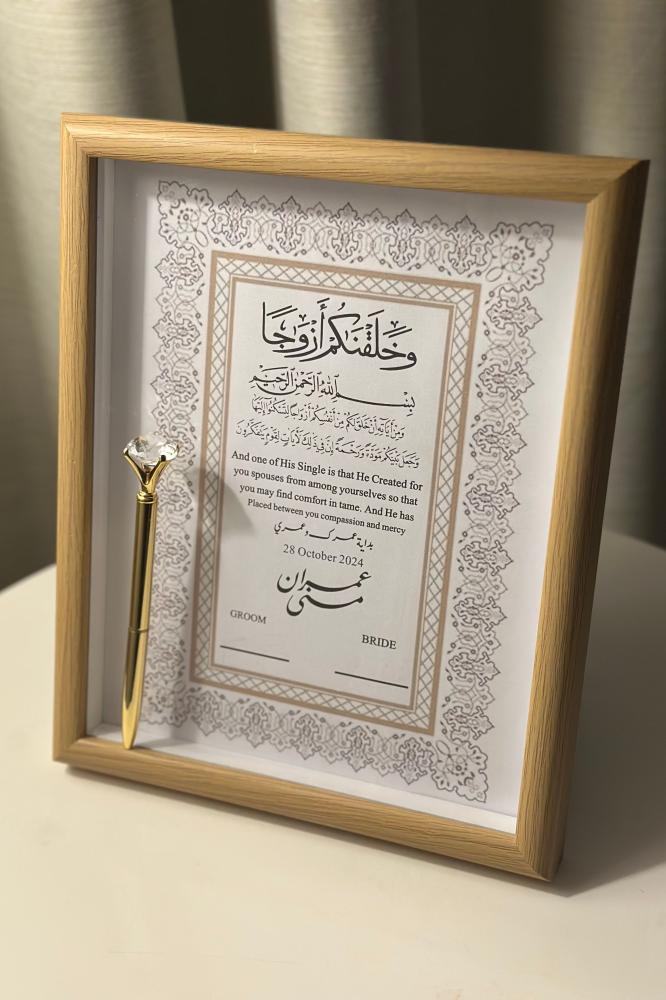 وَخَلَقْنَكُمْ أَزْوَجًا
بِسْمِ اللَّهِ الرَّحْمَنِ الرَّحِيمِ
وَمِنْ آيَاتِهِ أَنْ خَلَقَ لَكُم مِّنْ أَنفُسِكُمْ أَزْوَاجًا لِّتَسْكُنُوا إِلَيْهَا
وَجَعَلَ بَيْنَكُم مَّوَدَّةً وَرَحْمَةً إِنَّ فِي ذَلِكَ لَآيَاتٍ لِّقَوْمٍ يَتَفَكَّرُونَ
And one of His Single is that He Created for
you spouses from among yourselves so that
you may find comfort in tame. And He has
Placed between you compassion and mercy
بداية عمرك وعمري
28 October 2024
عمران
منى
GROOM
BRIDE